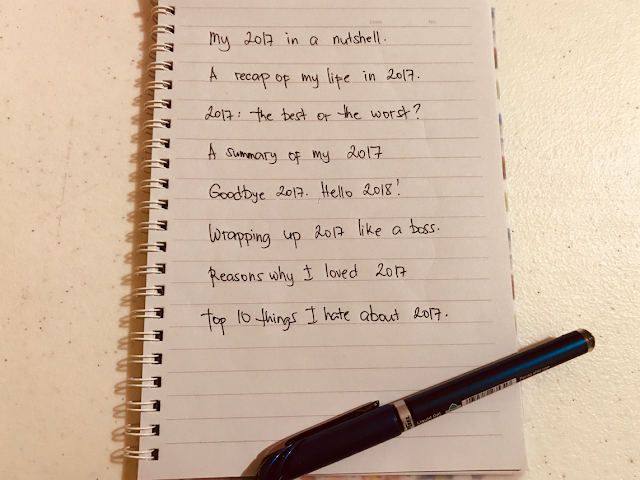 My 2017 in a nutshell.
A recap of my life in 2017.
2017: the best or the worst?
A summary of my 2017
Goodbye 2017. Hello 2018!
Wrapping up 2017 like a boss.
Reasons why I loved 2017
Top 10 things I hate about 2017.